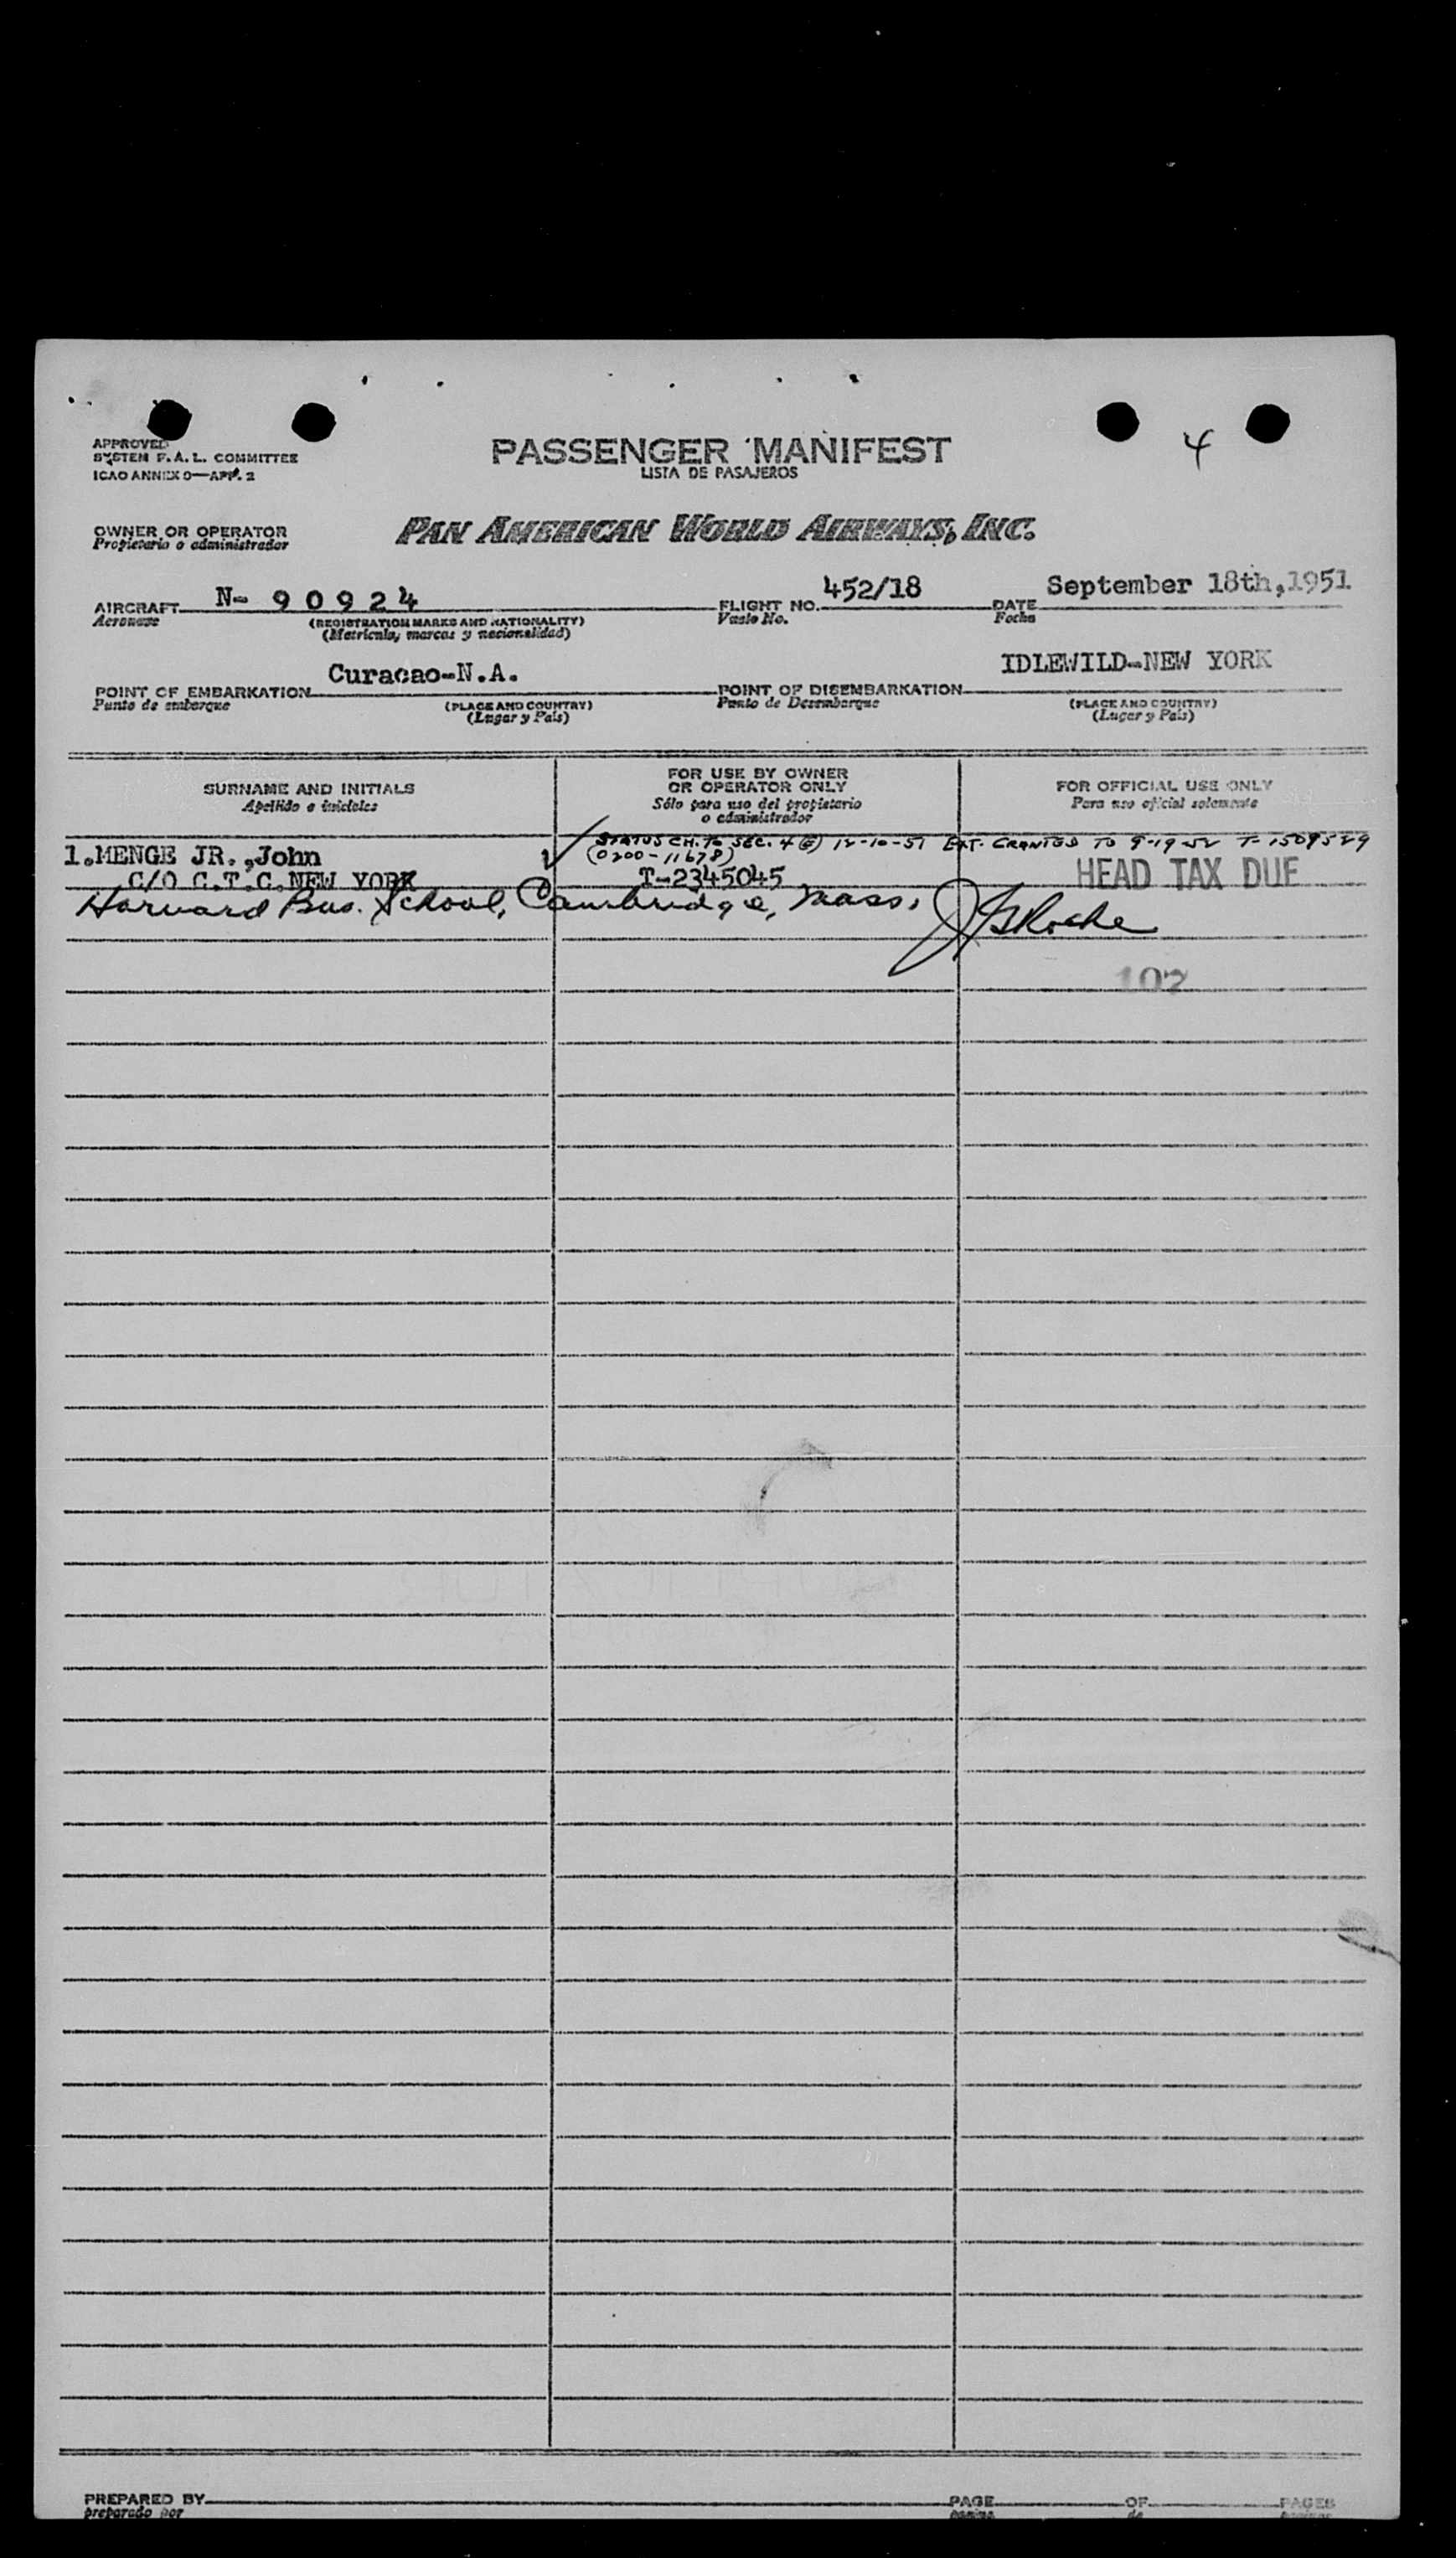 4
APPROVED
SYSTEM F.A.L. COMMITTEE
ICAO ANNEX 9—APP. 2
PASSENGER MANIFEST
LISTA DE PASAJEROS
OWNER OR OPERATOR
Propietario o administrador
PAN AMERICAN WORLD AIRWAYS, INC.
AIRCRAFT N- 90924 FLIGHT NO. 452/18 DATE September 18th,1951
Aeronave (REGISTRATION MARKS AND NATIONALITY) Vuelo No. Fecha
(Matrícula, marcas y nacionalidad)
POINT OF EMBARKATION Curacao-N.A. POINT OF DISEMBARKATION IDLEWILD-NEW YORK
Punto de embarque (PLACE AND COUNTRY) Punto de Desembarque (PLACE AND COUNTRY)
(Lugar y País) (Lugar y País)
SURNAME AND INITIALS
Apellido e iniciales
FOR USE BY OWNER
OR OPERATOR ONLY
Sólo para uso del propietario
o administrador
FOR OFFICIAL USE ONLY
Para uso oficial solamente
STATUS CH. TO SEC. 4 (E) 12-10-51 EXT. GRANTED TO 9-19-52 T-1509529
1.MENGE JR.,John (0200-11678)
C/O C.T.C.NEW YORK T-2345045 HEAD TAX DUE
Harvard Bus. School, Cambridge, Mass.
107
PREPARED BY PAGE OF PAGES
preparado por página de páginas